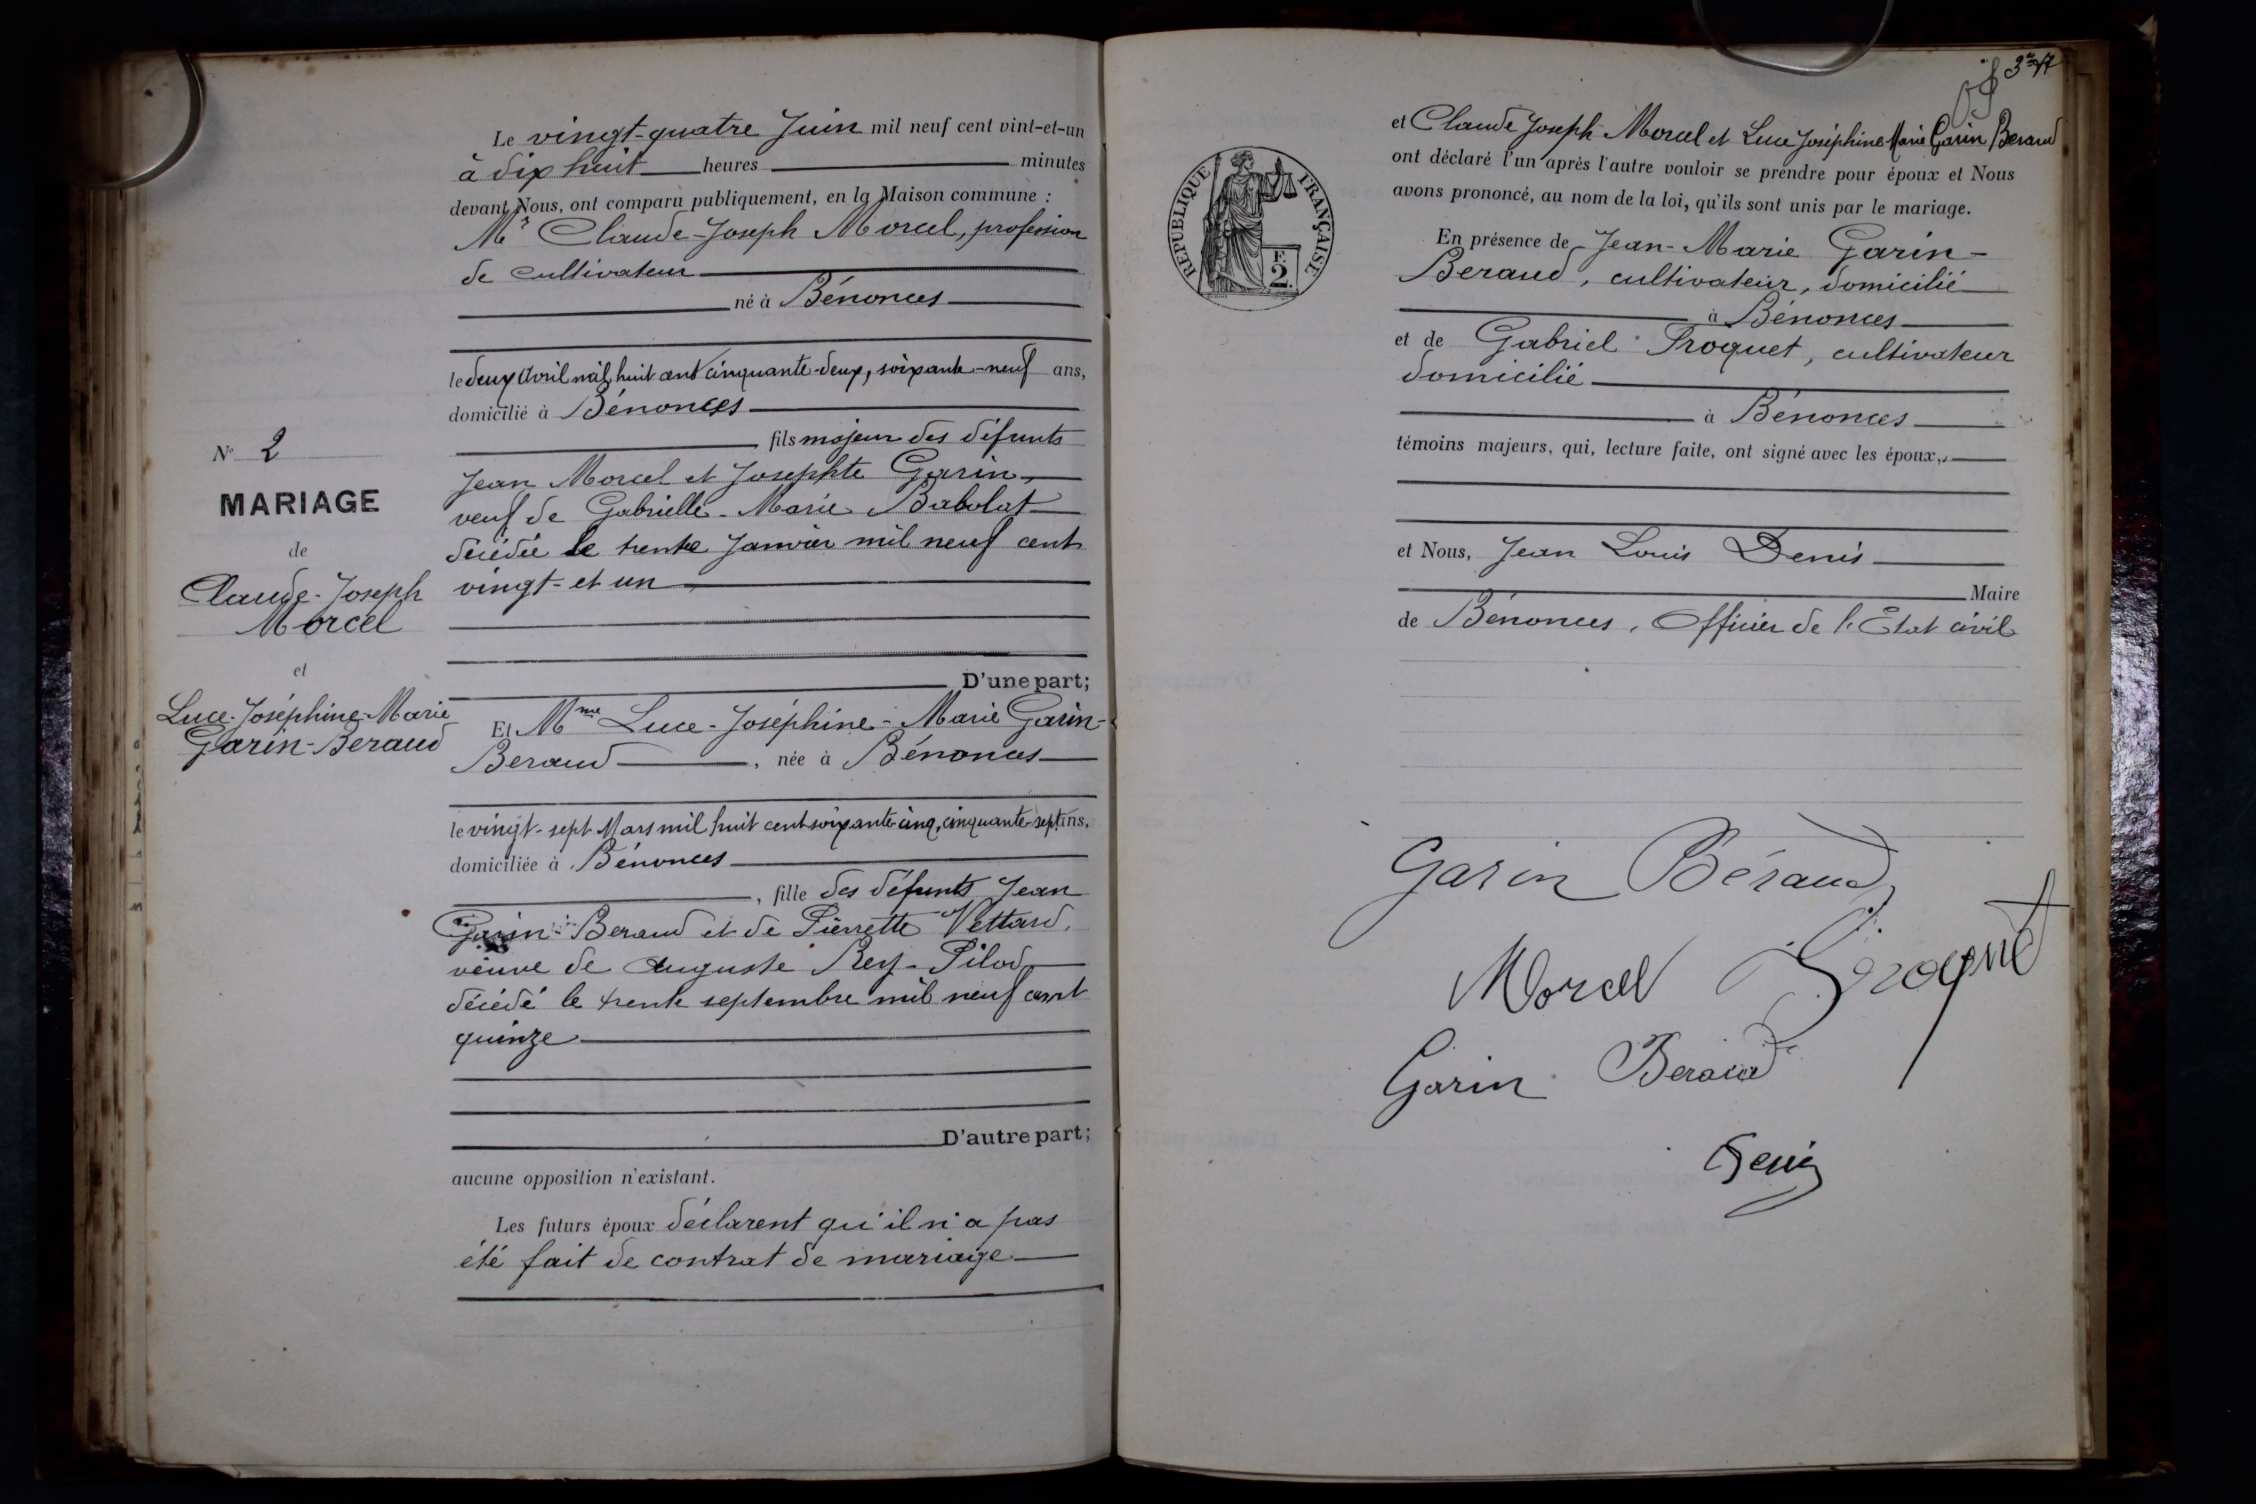 Le vingt-quatre Juin mil neuf cent vint-et-un
à dix huit heures minutes
devant Nous, ont comparu publiquement, en la Maison commune :
Mr Claude-Joseph Morcel, profession
de cultivateur
né à Bénonces
le deux Avril mil huit cent cinquante-deux, soixante-neuf ans,
domicilié à Bénonces
fils majeur des défunts
Jean Morcel et Josephte Garin,
veuf de Gabrielle-Marie Babolat
décédée le trente Janvier mil neuf cent
vingt-et un
D'une part;
Et Mme Luce-Joséphine-Marie Garin-
Beraud, née à Bénonces
le vingt-sept Mars mil huit cent soixante cinq, cinquante-sept ans,
domiciliée à Bénonces
, fille des défunts Jean
Garin-Beraud et de Pierrette Vettard,
veuve de Auguste Rey-Pilod
décédé le trente septembre mil neuf cent
quinze
D'autre part;
aucune opposition n'existant.
Les futurs époux déclarent qu'il n'a pas
été fait de contrat de mariage
No 2
MARIAGE
de
Claude-Joseph
Morcel
et
Luce-Joséphine-Marie
Garin-Beraud
RÉPUBLIQUE FRANÇAISE
F.
2.
et Claude Joseph Morcel et Luce Joséphine Marie Garin Beraud
ont déclaré l'un après l'autre vouloir se prendre pour époux et Nous
avons prononcé, au nom de la loi, qu'ils sont unis par le mariage.
En présence de Jean-Marie Garin-
Beraud, cultivateur, domicilié
à Bénonces
et de Gabriel Proquet, cultivateur
domicilié
à Bénonces
témoins majeurs, qui, lecture faite, ont signé avec les époux,
et Nous, Jean Louis Denis
Maire
de Bénonces, Officier de l'Etat civil
Garin Béraud
Morcel Proquet
Garin Beraud
Denis